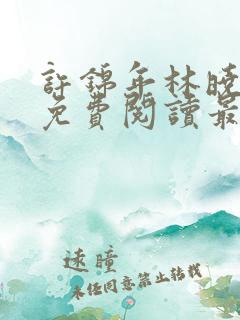 許錦年林曉
免費閱讀最
遠瞳
未經同意禁止轉載